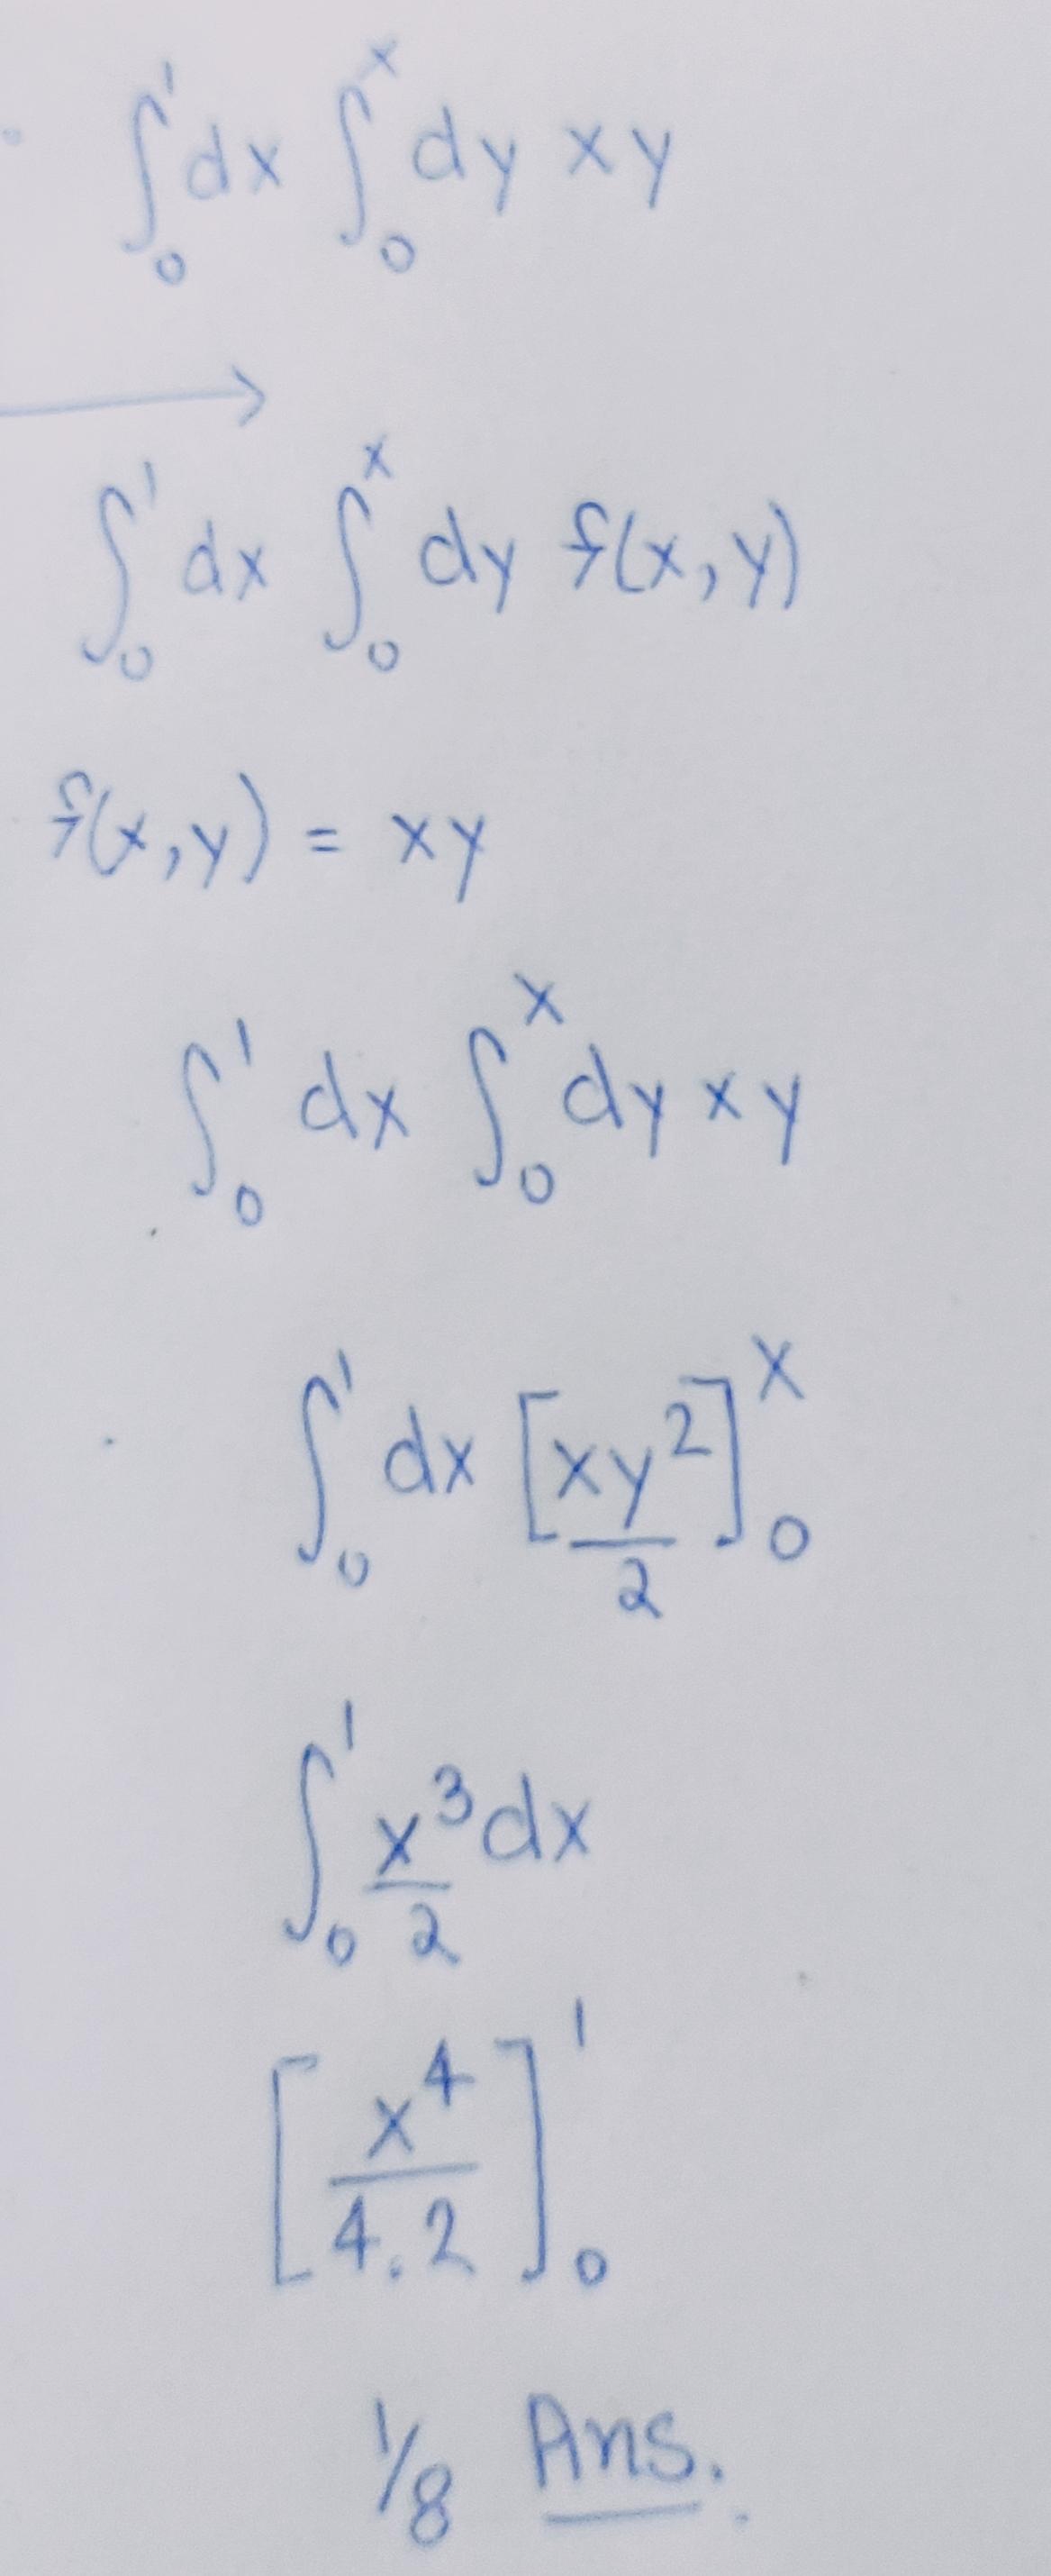 ∫₀¹ dx ∫₀ˣ dy xy
→
∫₀¹ dx ∫₀ˣ dy f(x,y)
f(x,y) = xy
∫₀¹ dx ∫₀ˣ dy xy
∫₀¹ dx [xy²/2]₀ˣ
∫₀¹ x³/2 dx
[x⁴/4.2]₀¹
1/8 Ans.